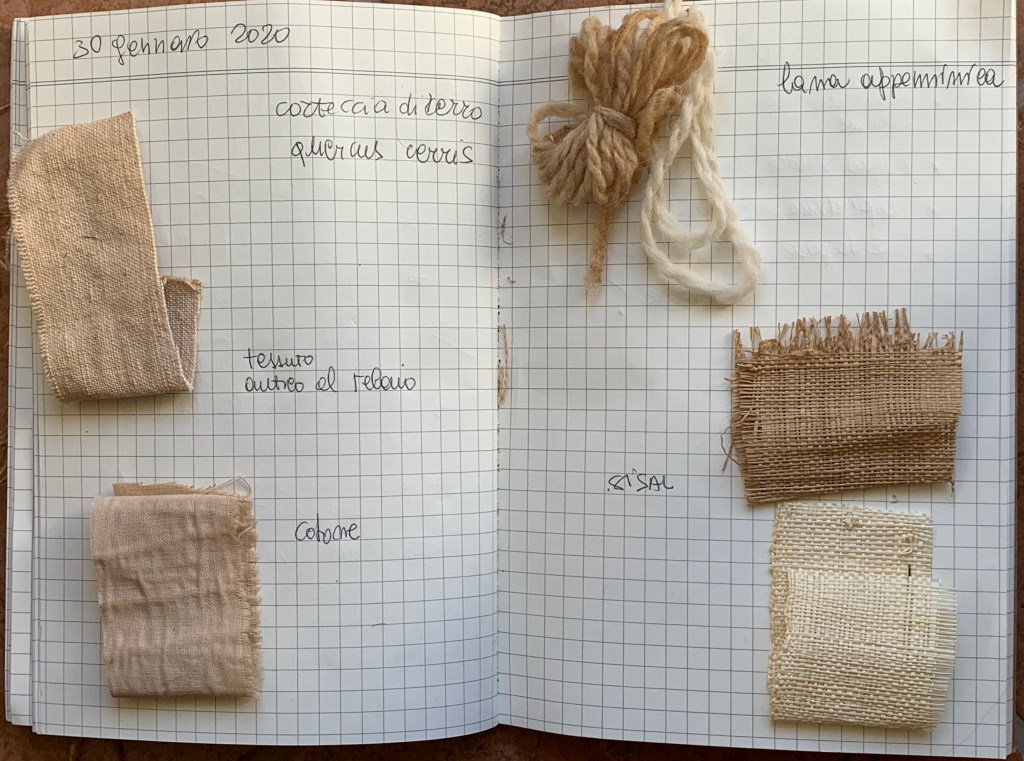 30 gennaro 2020
corteccia di cerro
quercus cerris
tessuto
antico al telaio
cotone
lana appenninica
SISAL